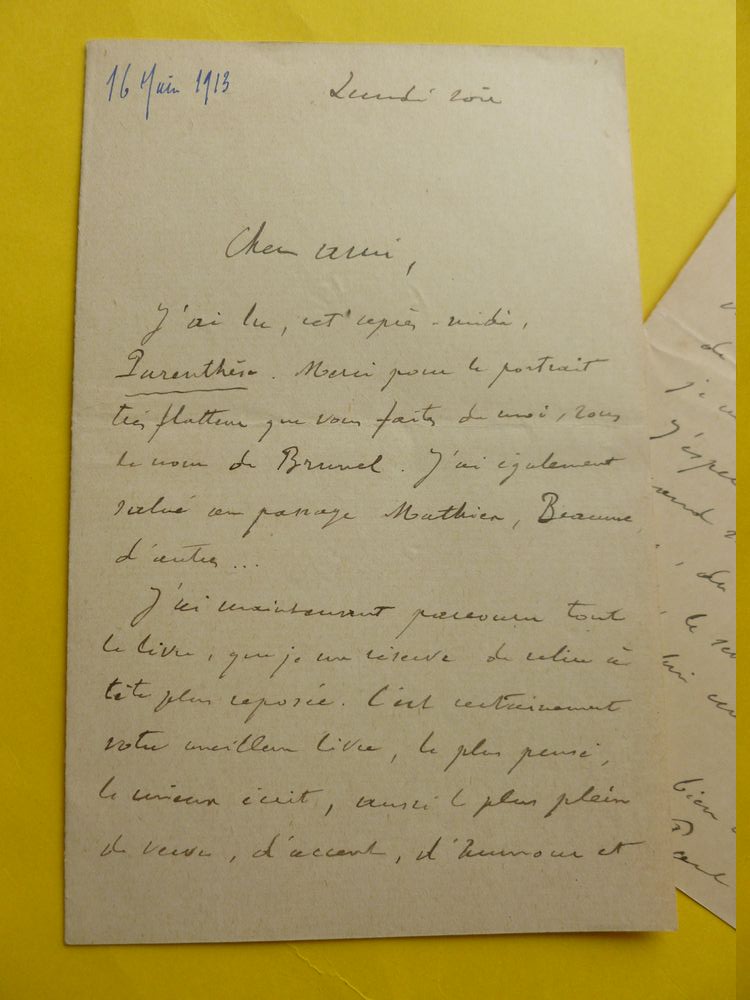 16 Juin 1913
Lundi soir
Cher ami,
J'ai lu, cet après-midi,
Parenthèse. Merci pour le portrait
très flatteur que vous faites de moi, sous
le nom de Brunel. J'ai également
salué au passage Mathieu, Beaume,
d'autres...
J'ai maintenant parcouru tout
le livre, que je me réserve de relire à
tête plus reposée. C'est certainement
votre meilleur livre, le plus pensé,
le mieux écrit, aussi le plus plein
de verve, d'accent, d'humour et
de
J'espè
du
bien
Paul